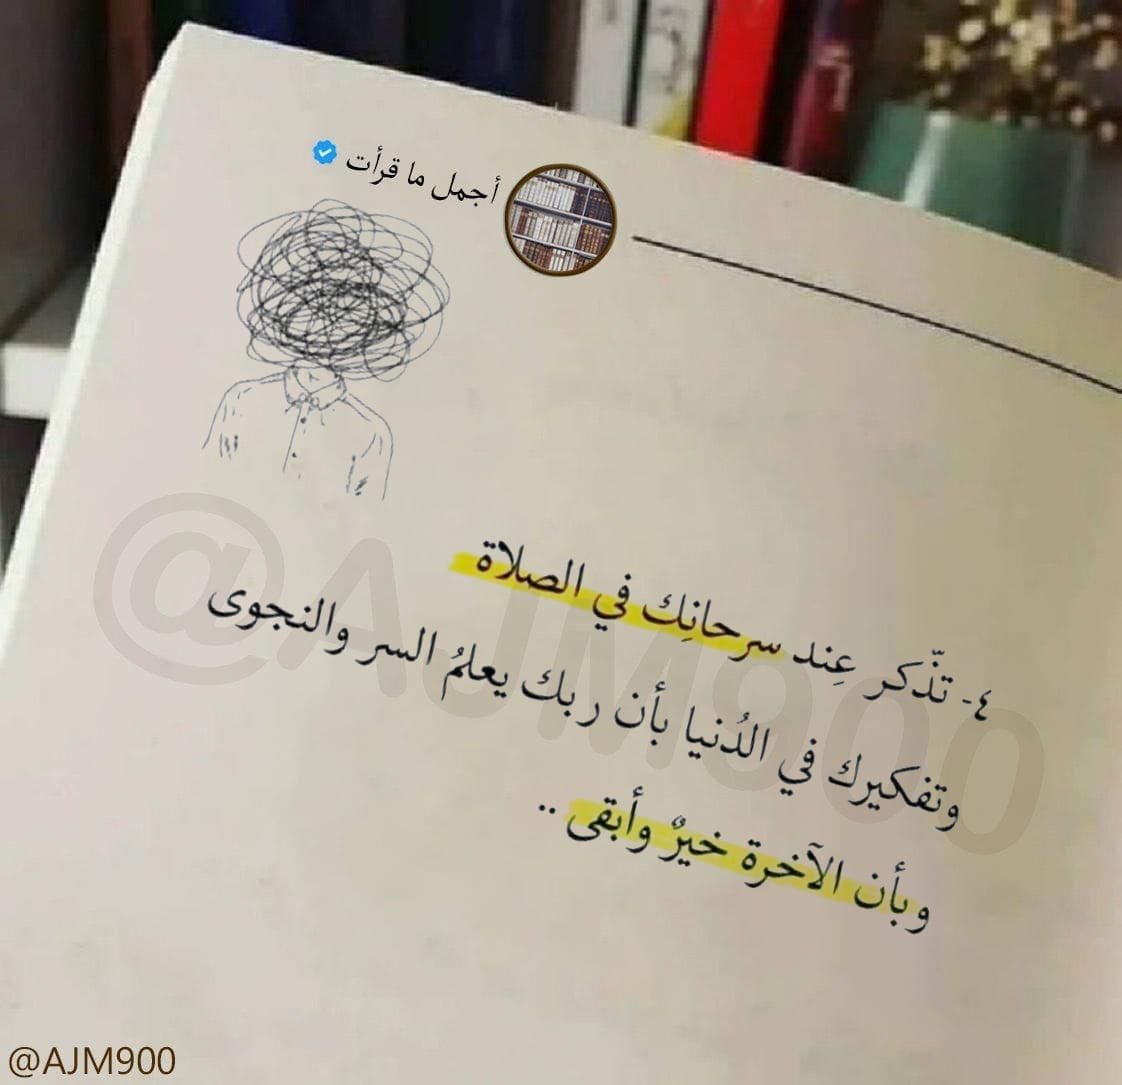 أجمل ما قرأت
٤- تذّكر عِند سرحانِك في الصلاة
وتفكيرك في الدُنيا بأن ربك يعلمُ السر والنجوى
وبأن الآخرة خيرٌ وأبقى ..
@AJM900
@AJM900